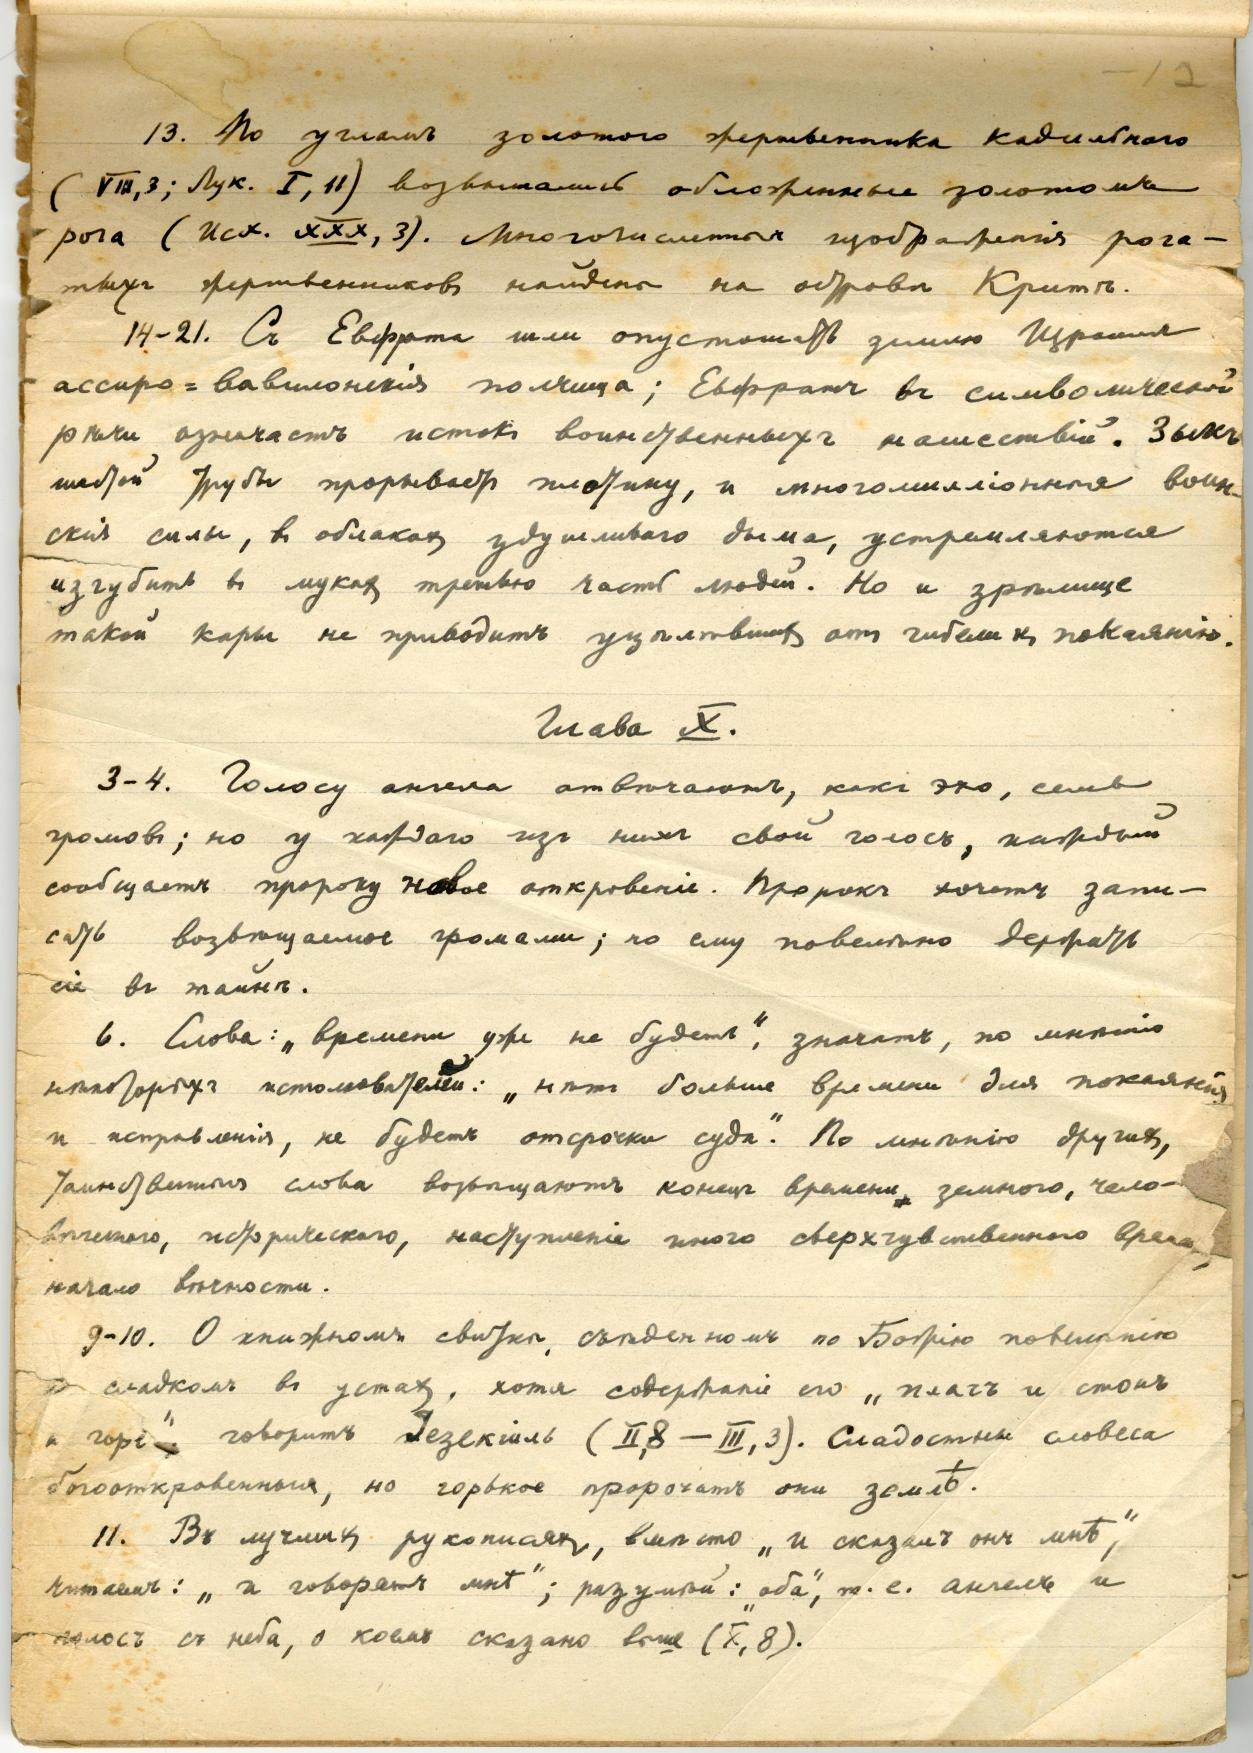 -12
13. По угламъ золотого жертвенника кадильнаго
(VIII,3; Лук. I, 11) возвышались обложенные золотомъ
рога (Исх. XXX, 3). Многочисленныя изображенія рога-
тыхъ жертвенниковъ найдены на островѣ Критѣ.
14-21. Съ Евфрата шли опустошать землю Израиля
ассиро=вавилонскія полчища; Евфратъ въ символической
рѣчи означаетъ истокъ воинственныхъ нашествій. Зыкъ
шестой трубы прорываетъ плотину, и многомилліонныя воин-
скія силы, въ облакахъ удушливаго дыма, устремляются
изгубить въ мукахъ третью часть людей. Но и зрѣлище
такой кары не приводитъ уцѣлѣвшихъ отъ гибели къ покаянію.
Глава X.
3-4. Голосу ангела отвѣчаютъ, какъ эхо, семь
громовъ; но у каждаго изъ нихъ свой голосъ, каждый
сообщаетъ пророку новое откровеніе. Пророкъ хочетъ запи-
сать возвѣщаемое громами; но ему повелѣно держать
сіе въ тайнѣ.
6. Слова: „времени уже не будетъ“, значатъ, по мнѣнію
нѣкоторыхъ истолкователей: „нѣтъ больше времени для покаянія
и исправленія, не будетъ отсрочки суда“. По мнѣнію другихъ,
таинственныя слова возвѣщаютъ конецъ времени земного, чело-
вѣческаго, историческаго, наступленіе иного сверхчувственнаго
начало вѣчности.
9-10. О книжномъ свиткѣ, съѣденномъ по Божію повелѣнію
и сладкомъ въ устахъ, хотя содержаніе его „плачъ и стонъ
и горе“, говоритъ Іезекіиль (II,8 — III, 3). Сладостны словеса
богооткровенныя, но горькое пророчатъ они землѣ.
11. Въ лучшихъ рукописяхъ, вмѣсто „и сказалъ онъ мнѣ“,
читаемъ: „и говорятъ мнѣ“; разумѣй: „оба“, т. е. ангелъ и
голосъ съ неба, о коемъ сказано выше (X, 8).